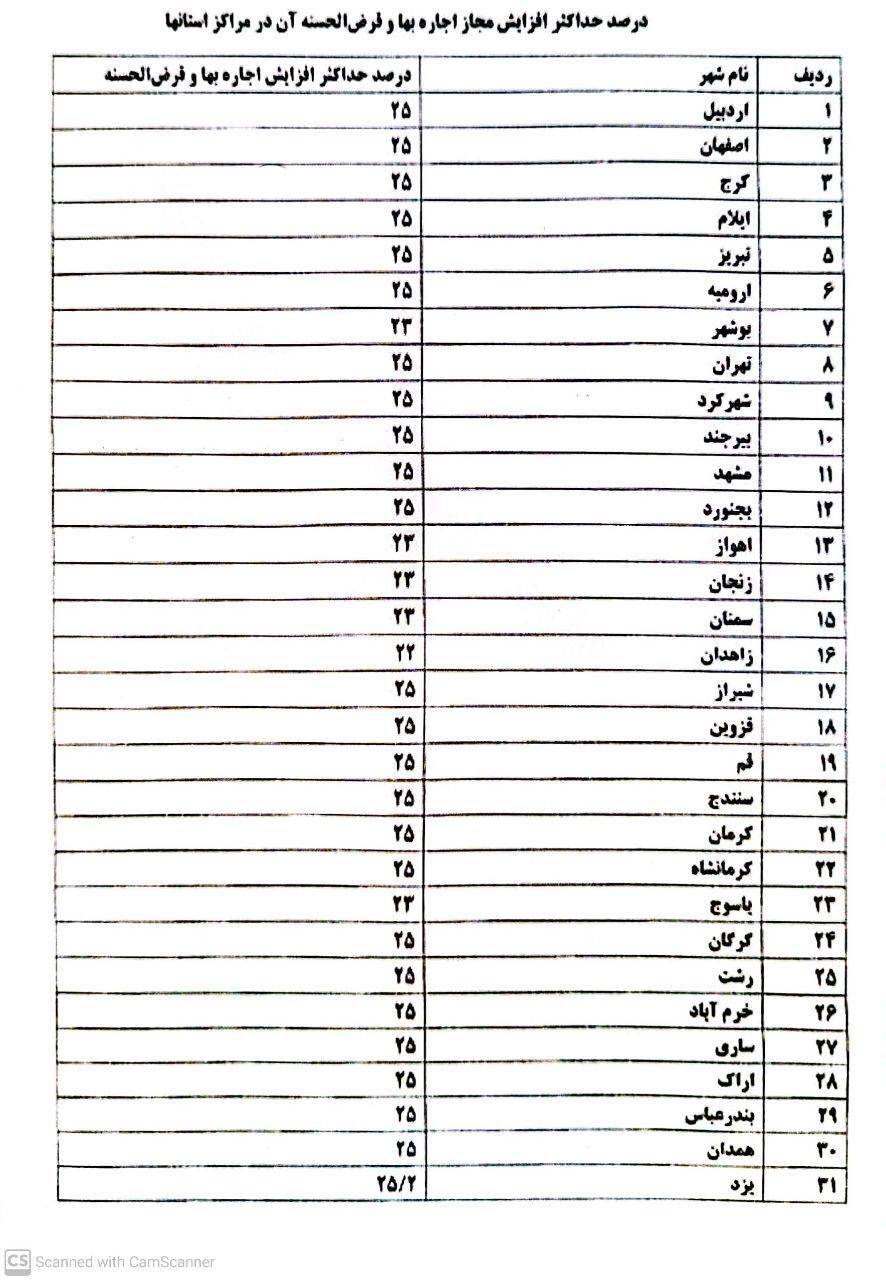 درصد حداکثر افزایش مجاز اجاره بها و قرض‌الحسنه آن در مراکز استانها
ردیف نام شهر درصد حداکثر افزایش اجاره بها و قرض‌الحسنه
۱ اردبیل ۲۵
۲ اصفهان ۲۵
۳ کرج ۲۵
۴ ایلام ۲۵
۵ تبریز ۲۵
۶ ارومیه ۲۵
۷ بوشهر ۲۳
۸ تهران ۲۵
۹ شهرکرد ۲۵
۱۰ بیرجند ۲۵
۱۱ مشهد ۲۵
۱۲ بجنورد ۲۵
۱۳ اهواز ۲۳
۱۴ زنجان ۲۳
۱۵ سمنان ۲۳
۱۶ زاهدان ۲۲
۱۷ شیراز ۲۵
۱۸ قزوین ۲۵
۱۹ قم ۲۵
۲۰ سنندج ۲۵
۲۱ کرمان ۲۵
۲۲ کرمانشاه ۲۵
۲۳ یاسوج ۲۳
۲۴ گرگان ۲۵
۲۵ رشت ۲۵
۲۶ خرم آباد ۲۵
۲۷ ساری ۲۵
۲۸ اراک ۲۵
۲۹ بندرعباس ۲۵
۳۰ همدان ۲۵
۳۱ یزد ۲۵/۲
CS Scanned with CamScanner